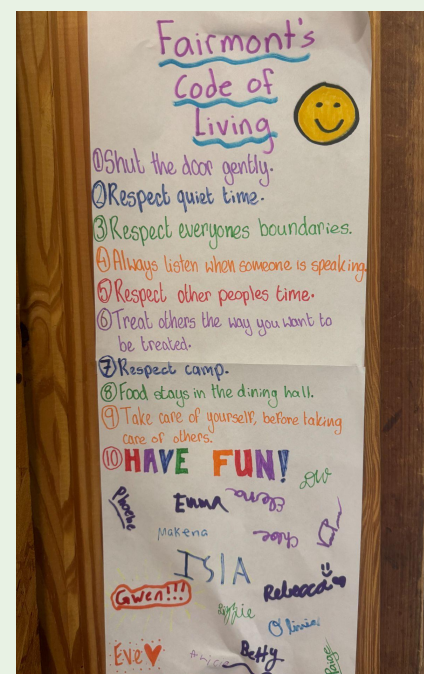 Fairmont's
Code of
Living
①Shut the door gently.
②Respect quiet time.
③Respect everyones boundaries.
④Always listen when someone is speaking.
⑤Respect other peoples time.
⑥Treat others the way you want to
be treated.
⑦Respect camp.
⑧Food stays in the dining hall.
⑨Take care of yourself, before taking
care of others.
⑩HAVE FUN!
DW
Phoebe
Emma
Elena
Makena
Chloe
ISIA
Rebecca
Gwen!!!
Lizzie
Olivia
Eve
Betty
Paige